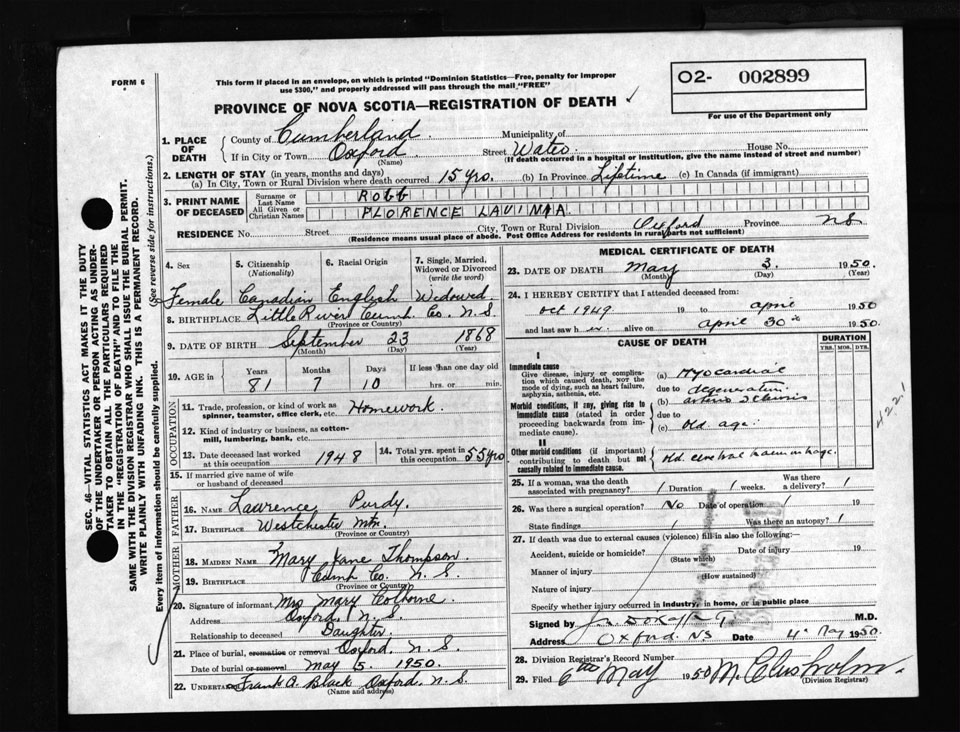 FORM 6
This form if placed in an envelope, on which is printed "Dominion Statistics—Free, penalty for improper
use $300," and properly addressed will pass through the mail "FREE"
O2- 002899
For use of the Department only
PROVINCE OF NOVA SCOTIA—REGISTRATION OF DEATH
1. PLACE OF DEATH
County of Cumberland Municipality of
If in City or Town Oxford Street Water House No.
(Name) (If death occurred in a hospital or institution, give the name instead of street and number)
2. LENGTH OF STAY (in years, months and days)
(a) In City, Town or Rural Division where death occurred 15 yrs. (b) In Province Lifetime (c) In Canada (if immigrant)
3. PRINT NAME OF DECEASED
Surname or Last Name ROBB
All Given or Christian Names FLORENCE LAVINIA
RESIDENCE No. Street City, Town or Rural Division Oxford Province N.S
(Residence means usual place of abode. Post Office Address for residents in rural parts not sufficient)
4. Sex 5. Citizenship (Nationality) 6. Racial Origin 7. Single, Married, Widowed or Divorced (write the word)
Female Canadian English Widowed
8. BIRTHPLACE Little River Cumb. Co. N.S.
(Province or Country)
9. DATE OF BIRTH September 23 1868
(Month) (Day) (Year)
10. AGE in Years Months Days If less than one day old
81 7 10 hrs. or min.
OCCUPATION
11. Trade, profession, or kind of work as spinner, teamster, office clerk, etc. Homework.
12. Kind of industry or business, as cotton-mill, lumbering, bank, etc.
13. Date deceased last worked at this occupation 1948 14. Total yrs. spent in this occupation 55 yrs
15. If married give name of wife or husband of deceased
FATHER
16. NAME Lawrence Purdy
17. BIRTHPLACE Westchester Mtn.
(Province or Country)
MOTHER
18. MAIDEN NAME Mary Jane Thompson
19. BIRTHPLACE Cumb Co. N.S.
(Province or Country)
20. Signature of informant Mrs Mary Colborne
Address Oxford N.S.
Relationship to deceased Daughter.
21. Place of burial, cremation or removal Oxford. N.S.
Date of burial or removal May 5. 1950.
22. Undertaker Frank A. Black Oxford. N.S.
(Name and address)
MEDICAL CERTIFICATE OF DEATH
23. DATE OF DEATH May 3. 1950.
(Month) (Day) (Year)
24. I HEREBY CERTIFY that I attended deceased from:
Oct 1949 19 to april 1950
and last saw her alive on april 30th 1950.
CAUSE OF DEATH DURATION
YRS. MOS. DYS.
I
Immediate cause
Give disease, injury or complication which caused death, not the mode of dying, such as heart failure, asphyxia, asthenia, etc.
(a) Myocardial
due to degeneration
Morbid conditions, if any, giving rise to immediate cause (stated in order proceeding backwards from immediate cause).
(b)
due to
(c) old age
II
Other morbid conditions (if important) contributing to death but not causally related to immediate cause.
old cerebral haemorrhage.
422.1
25. If a woman, was the death associated with pregnancy? Duration weeks. Was there a delivery?
26. Was there a surgical operation? No Date of operation 19
State findings Was there an autopsy?
27. If death was due to external causes (violence) fill in also the following:—
Accident, suicide or homicide? Date of injury 19
(State which)
Manner of injury
(How sustained)
Nature of injury
Specify whether injury occurred in industry, in home, or in public place
Signed by M.D.
Address Oxford NS Date 4 May 1950.
28. Division Registrar's Record Number
29. Filed 6th May 1950 M. Chisholm.
(Division Registrar)
SEC. 46—VITAL STATISTICS ACT MAKES IT THE DUTY
OF THE UNDERTAKER OR PERSON ACTING AS UNDER-
TAKER TO OBTAIN ALL THE PARTICULARS REQUIRED
IN THE "REGISTRATION OF DEATH" AND TO FILE THE
SAME WITH THE DIVISION REGISTRAR WHO SHALL ISSUE THE BURIAL PERMIT.
WRITE PLAINLY WITH UNFADING INK. THIS IS A PERMANENT RECORD.
Every item of information should be carefully supplied. (See reverse side for instructions.)